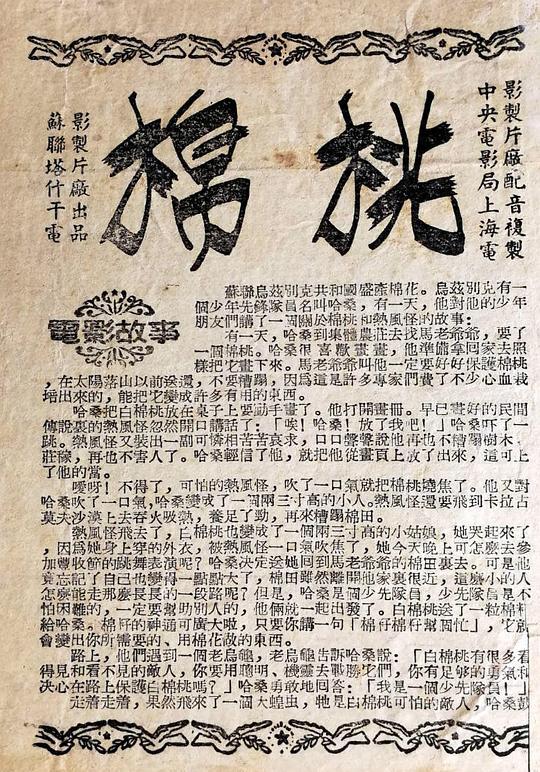 棉桃
中央電影局上海電
影製片廠配音複製
蘇聯塔什干電
影製片廠出品
電影故事
蘇聯烏茲別克共和國盛產棉花。烏茲別克有一
個少年先鋒隊員名叫哈桑,有一天,他對他的少年
朋友們講了一個關於棉桃和熱風怪的故事:
有一天,哈桑到集體農莊去找馬老爺爺,要了
一個棉桃。哈桑很喜歡畫畫,他準備拿回家去照
樣把它畫下來。馬老爺爺叫他一定要好好保護棉桃
,在太陽落山以前送還,不要糟蹋,因爲這是許多專家們費了不少心血栽
培出來的,能把它變成許多有用的東西。
哈桑把白棉桃放在桌子上要動手畫了。他打開畫冊。早已畫好的民間
傳說裏的熱風怪忽然開口講話了:「唉!哈桑!放了我吧!」哈桑吓了一
跳。熱風怪又裝出一副可憐相苦苦哀求,口口聲聲說他再也不糟蹋樹木、
莊稼,再也不害人了。哈桑輕信了他,就把他從畫頁上放了出來,這可上
了他的當。
噯呀!不得了,可怕的熱風怪,吹了一口氣就把棉桃燒焦了。他又對
哈桑吹了一口氣,哈桑變成了一個兩三寸高的小人。熱風怪還要飛到卡拉古
莫夫沙漠上去吞火吸熱,養足了勁,再來糟蹋棉田。
熱風怪飛去了,白棉桃也變成了一個兩三寸高的小姑娘,她哭起來了
,因爲她身上穿的外衣,被熱風怪一口氣吹焦了,她今天晚上可怎麽去參
加豐收節的跳舞表演呢?哈桑決定送她回到馬老爺爺的棉田裏去。可是他
竟忘記了自己也變得一點點大了,棉田雖然離開他家裏很近,這麽小的人
怎麽能走那麽長長的一段路呢?但是,哈桑是個少先隊員,少先隊員是不
怕困難的,一定要幫助別人的,他倆就一起出發了。白棉桃送了一粒棉籽
給哈桑。棉籽的神通可廣大啦,只要你講一句「棉仔棉仔幫個忙」,它就
會變出你所需要的、用棉花做的東西。
路上,他們遇到一個老烏龜,老烏龜告訴哈桑說:「白棉桃有很多看
得見和看不見的敵人,你要用聰明、機靈去戰勝它們,你有足夠的勇氣和
決心在路上保護白棉桃嗎?」哈桑勇敢地回答:「我是一個少先隊員!」
走着走着,果然飛來了一個大蝗虫,牠是白棉桃可怕的敵人,哈桑